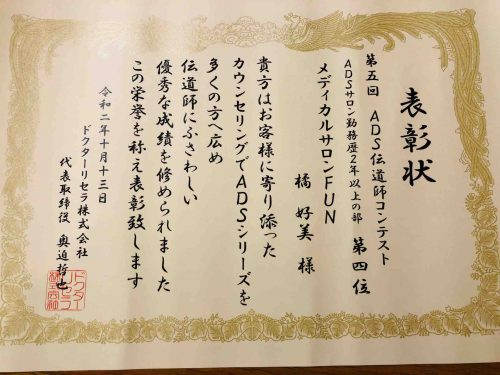 表彰状
第五回 ADS伝道師コンテスト
ADSサロン勤務歴2年以上の部 第四位
メディカルサロンFUN
橘 好美 様
貴方はお客様に寄り添った
カウンセリングでADSシリーズを
多くの方へ広め
伝道師にふさわしい
優秀な成績を修められました
この栄誉を称え表彰致します
令和二年十月十三日
ドクターリセラ株式会社
代表取締役 奥迫哲也
ドクター
リセラ
株式会社